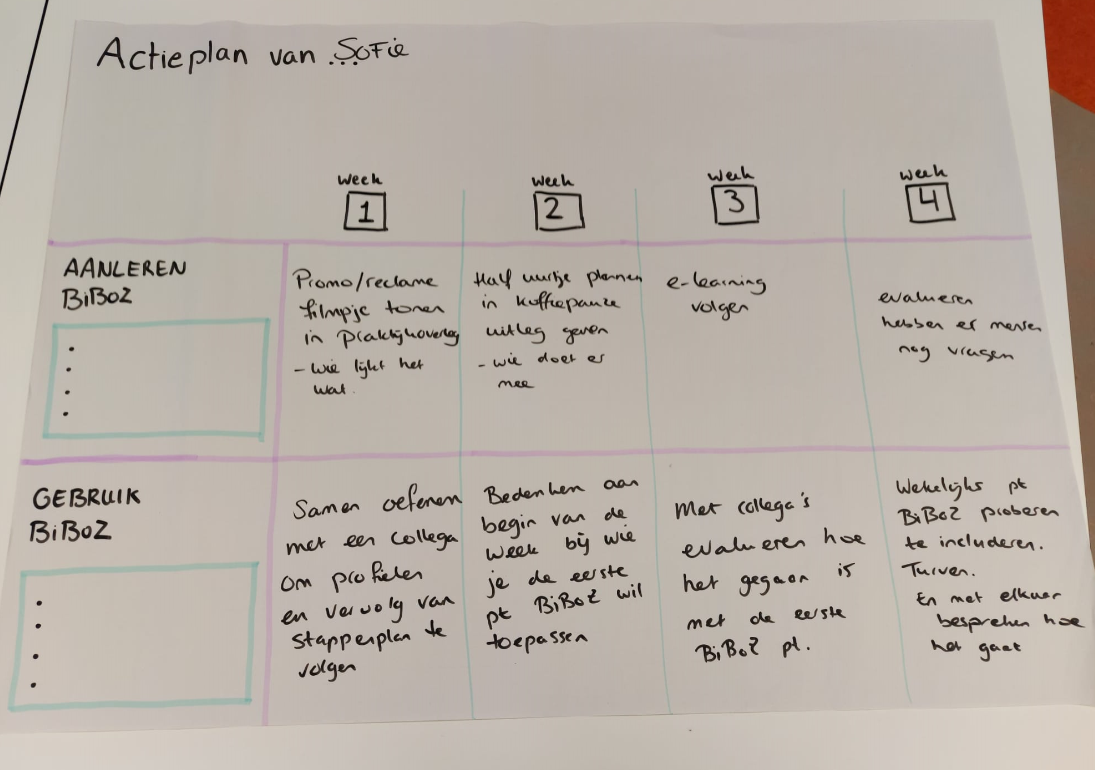 Actieplan van ...Sofie
week
1
week
2
week
3
week
4
AANLEREN
BiBoZ
Promo/reclame
filmpje tonen
in praktijkoverleg
- wie lijkt het
wat.
Half uurtje plannen
in koffiepauze
uitleg geven
- wie doet er
mee
e-learning
volgen
evalueren
hebben er mensen
nog vragen
GEBRUIK
BiBoZ
Samen oefenen
met een collega
om profielen
en vervolg van
stappenplan te
volgen
Bedenken aan
begin van de
week bij wie
je de eerste
pt BiBoZ wil
toepassen
Met collega's
evalueren hoe
het gegaan is
met de eerste
BiBoZ pt.
Wekelijks pt
BiBoZ proberen
te includeren.
Turven.
En met elkaar
bespreken hoe
het gaat